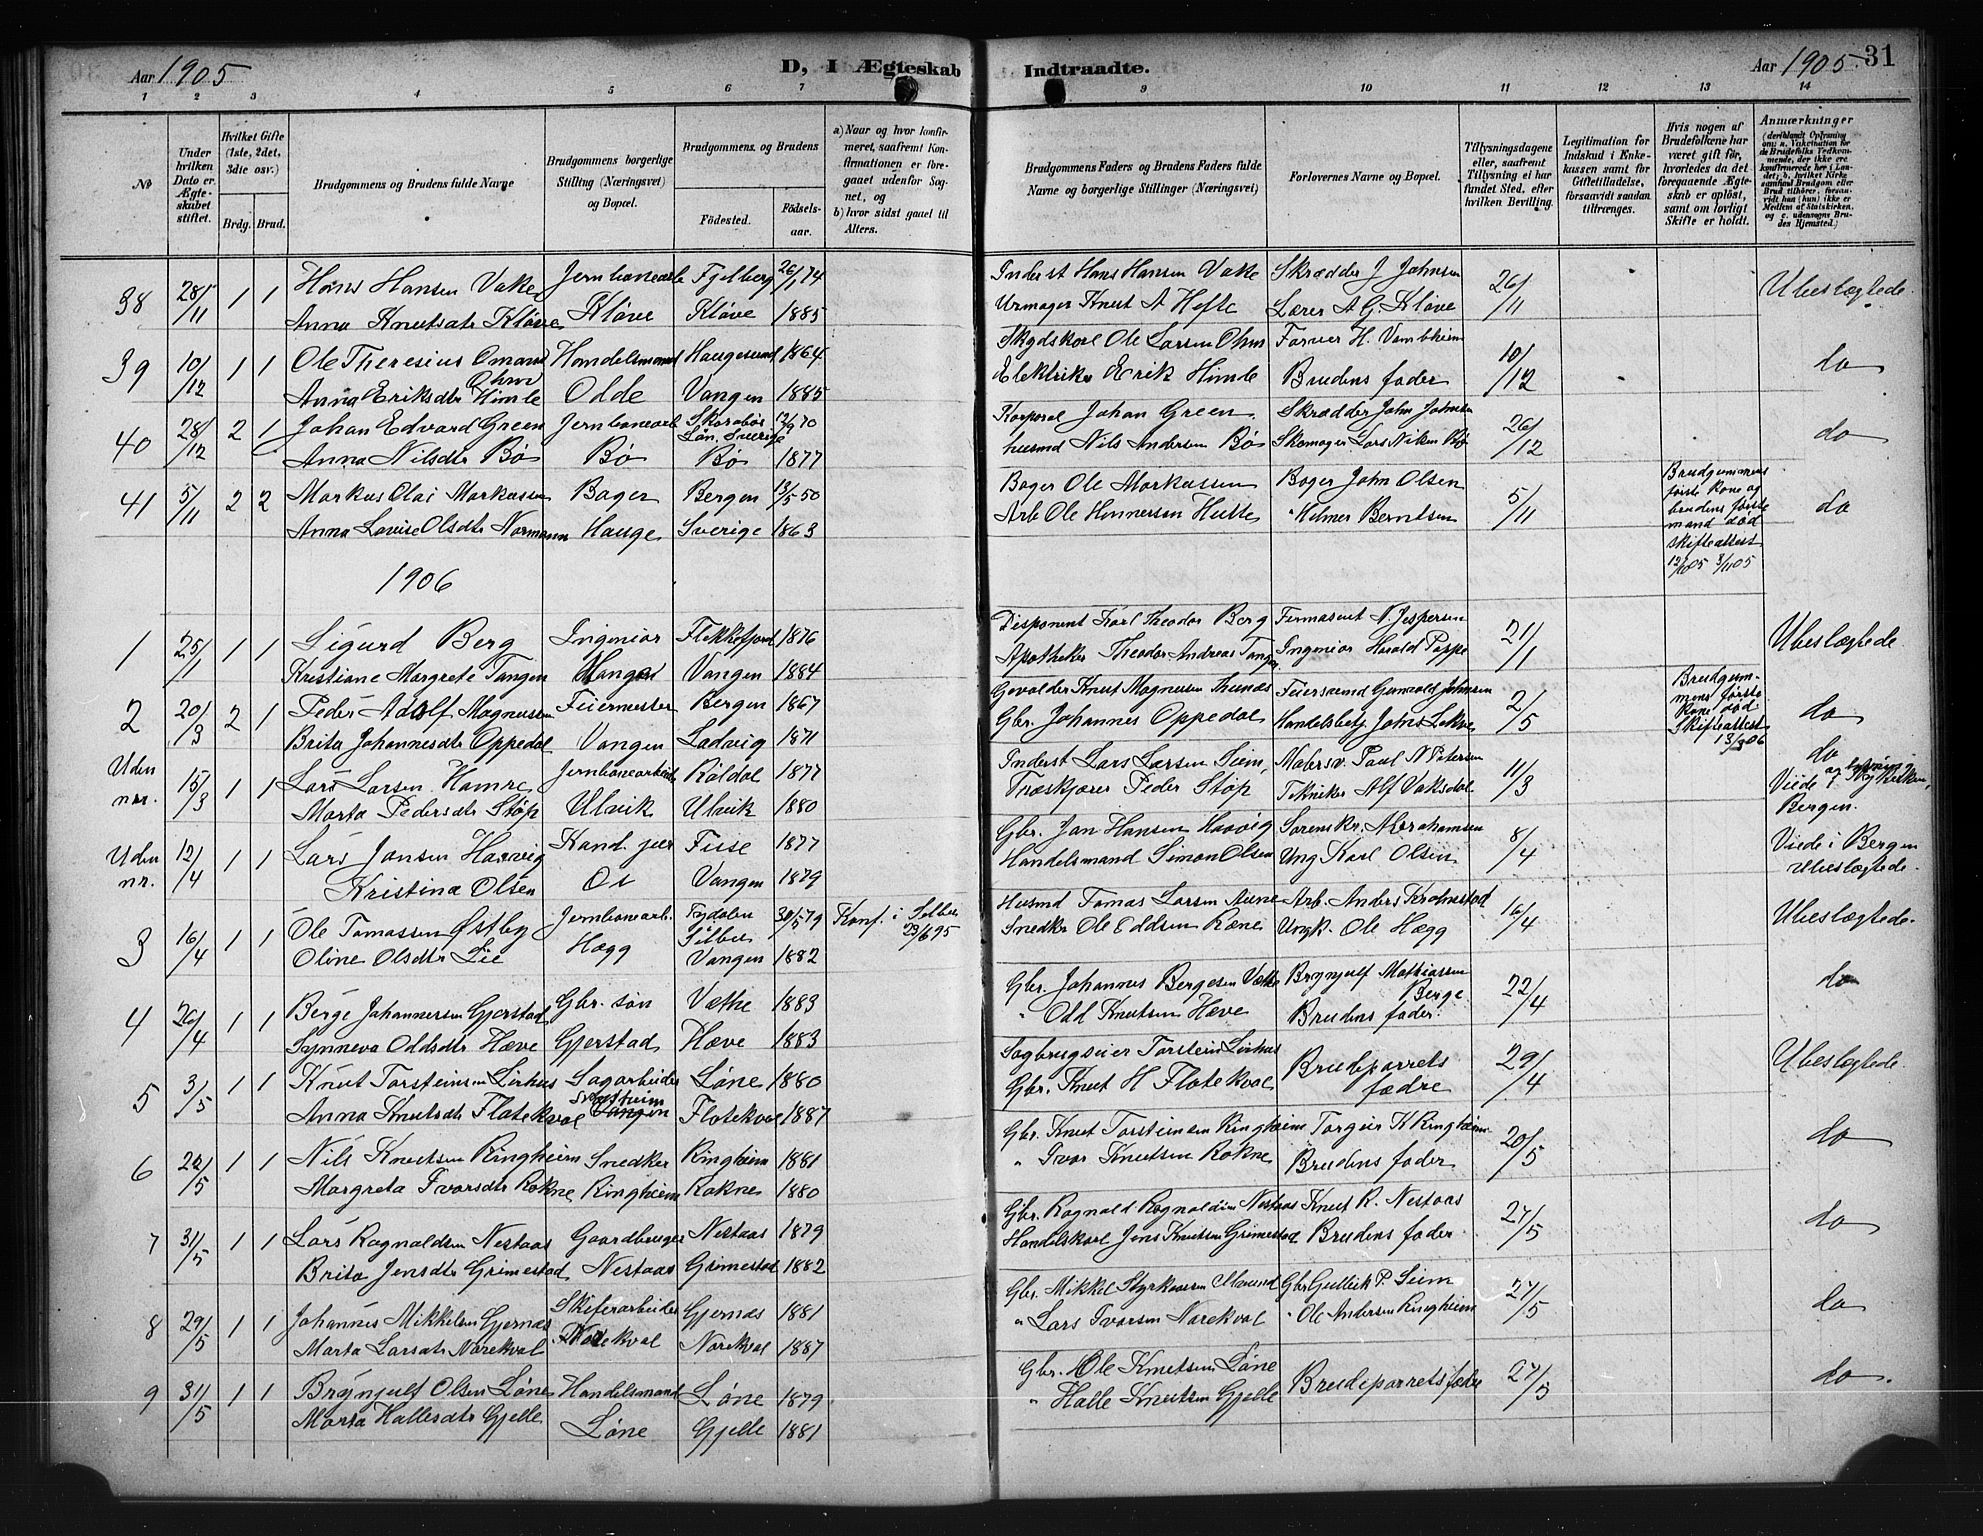 Aar 1905
D, I Ægteskab Indtraadte.
Aar 1905
31
1 2 3 4 5 6 7 9 10 11 12 13 14
No
Under hvilken Dato er Ægteskabet stiftet.
Hvilket Gifte (1ste, 2det, 3dte osv.)
Brdg. Brud.
Brudgommens og Brudens fulde Navne
Brudgommens borgerlige Stilling (Næringsvei) og Bopæl.
Brudgommens. og Brudens
Födested.
Födselsaar.
a) Naar og hvor konfirmeret, saafremt Konfirmationen er foregaaet udenfor Sognet, og
b) hvor sidst gaaet til Alters.
Brudgommens Faders og Brudens Faders fulde Navne og borgerlige Stillinger (Næringsvei)
Forlovernes Navne og Bopæl.
Tillysningsdagene eller, saafremt Tillysning ei har fundet Sted, efter hvilken Bevilling.
Legitimation for Indskud i Enkekassen samt for Giftetilladelse, forsaavidt saadan tiltrænges.
Hvis nogen af Brudefolkene har været gift før, hvorledes da det foregaaende Ægteskab er opløst, samt om lovligt Skifte er holdt.
Anmærkninger
38 28/11 1 1 Hans Hansen Vake Jernbanearb Fjelberg 26/1 74 Inderst Hans Hansen Vake Skrædder J Johnsen 26/11 Ubeslægtede.
Anna Knutsdtr Kløve Kløve Kløve 1885 Urmager Knut A Hefte Lærer A G. Kløve
39 10/12 1 1 Ole Theresius Omann Handelsmand Haugesund 1864 Skydskarl Ole Larsen Ohm Farver H. Vambheim 10/12 do
Ohm
Anna Eriksdtr Himle Odde Vangen 1885 Elektriker Erik Himle Brudens fader
40 28/12 2 1 Johan Edvard Green Jernbanearb Skaraborg Län, Sverige 12/9 70 Korporal Johan Green Skrædder John Johnsen 26/12 do
Anna Nilsdtr Bø Bø Bø 1877 husmd Nils Andersen Bø Skomager Lars Nilsen Bø
41 5/11 2 2 Markus Olai Markussen Bager Bergen 13/5 50 Bager Ole Markussen Bager John Olsen 5/11 do
Brudgommens første Kone og brudens første mand død skifteattest 12/10 05 3/11 05
Anna Lovise Olsdtr Normann Hauge Sverige 1863 Arb Ole Hennersen Hutte " Helmer Berntsen
1906
1 25/1 1 1 Sigurd Berg Ingeniør Flekkefjord 1876 Disponent Karl Theodor Berg Firmaseut N. Jespersen 21/1 Ubeslægtede
Kristiane Margrete Tangen Vangen Vangen 1884 Apotheker Theodor Andreas Tangen Ingeniør Harald Poppe
2 20/3 2 1 Peder Adolf Magnussen Feiermester Bergen 1867 Knut Magnussen Feiersvend Gunvald Johnsen 2/5 do
Brudgommens første Kone død Skifteattest 13/3 06
Brita Johannesdtr Oppedal Vangen Ladvig 1871 Gbr. Johannes Oppedal Handelsbetj Johs Lekve
Uden nr. 15/3 1 1 Lars Larsen Hamre Jernbanearbeid Røldal 1877 Inderst Lars Larsen Seim, Malersv. Paul N Petersen 11/3 do
Viede i Nykirken, Bergen.
Marta Pedersdtr Støp Ulvik Ulvik 1880 Træskjærer Peder Støp Tekniker Alf Vaksdal
Uden nr. 12/4 1 1 Lars Jansen Haavig Kand. jur Fuse 1877 Gbr. Jan Hansen Haavig Sorenskr. Abrahamsen 8/4 Viede i Bergen
Kristina Olsen Os Vangen 1879 Handelsmand Simon Olsen Ung Karl Olsen Ubeslægtede.
3 16/4 1 1 Ole Tomassen Østby Jernbanearb. Tydalen Sælbu 30/5 79 Konf. i Selbu 23/6 95 Husmd Tomas Larsen Aune Arb. Anders Krokmestad 16/4 Ubeslægtede.
Oline Olsdtr Lie Hægg Vangen 1882 Snedker Ole Eddsen Røne Ungk. Ole Hægg
4 26/4 1 1 Berge Johannessen Gjerstad Gbr. søn Væthe 1883 Gbr. Johannes Bergesen Væthe Brynjulf Mathiassen Berge 22/4 do
Synneva Oddsdtr Hæve Gjerstad Hæve 1883 " Odd Knutsen Hæve Brudens fader.
5 3/5 1 1 Knut Torsteinsen Lirhus Sagarbeider Løne 1880 Sagbrugseier Torstein Lirhus Brudeparrets fædre 29/4 Ubeslægtede.
Anna Knutsdtr Flatekval Vangen Flatekval 1887 Gbr. Knut H Flatekval
6 22/5 1 1 Nils Knutsen Ringheim Snedker Ringheim 1881 Gbr. Knut Torsteinsen Ringheim Torgeir K Ringheim 20/5 do
Margreta Ivarsdtr Rokne Ringheim Rokne 1880 " Ivar Knutsen Rokne Brudens fader
7 31/5 1 1 Lars Ragnaldsen Nestaas Gaardbruger Nestaas 1879 Gbr. Ragnald Ragnaldsen Nestaas Knut R. Nestaas 27/5 do
Brita Jensdtr Grimestad Nestaas Grimestad 1882 Handelskarl Jens Knutsen Grimestad Brudens fader
8 29/5 1 1 Johannes Mikkelsen Gjernæs Skiferarbeider Gjernæs 1881 Gbr. Mikkel Styrkaarsen Mæund Gbr Gulleik P. Seim 27/5 do
Marta Larsdtr Nørekval Nørekval Nørekval 1887 " Lars Ivarsen Nørekval " Ole Andersen Ringheim
9 31/5 1 1 Brynjulf Olsen Løne Handelsmand Løne 1879 Gbr. Ole Knutsen Løne Brudeparrets fædre 27/5 do.
Marta Hallesdtr Gjelle Løne Gjelle 1881 " Halle Knutsen Gjelle